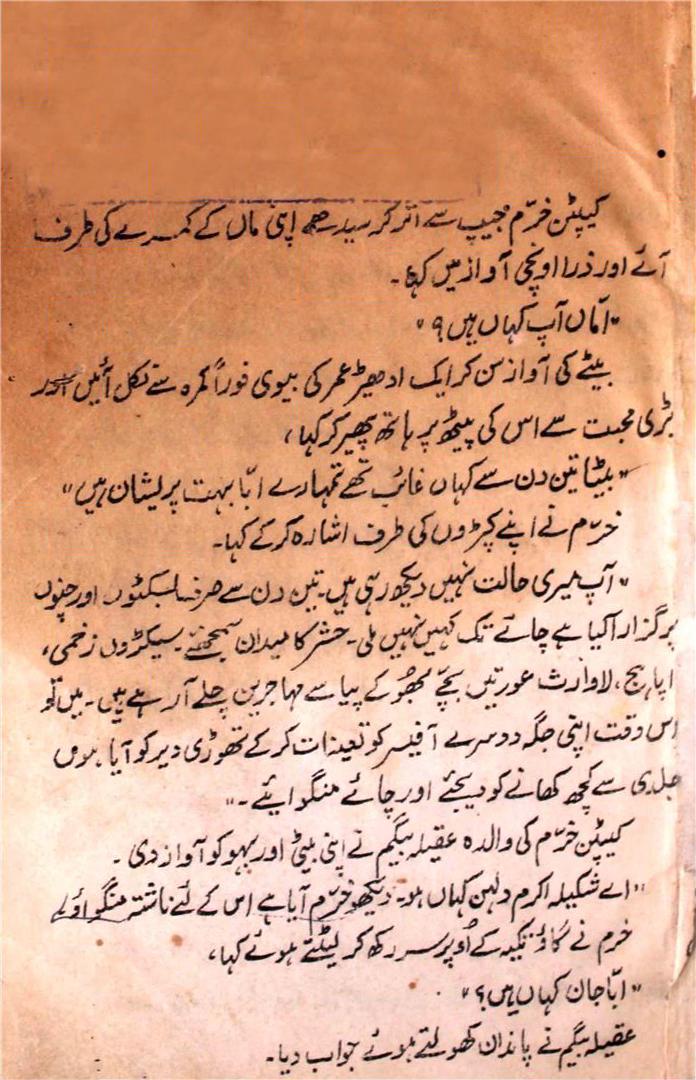 کیپٹن خرّم جیپ سے اتر کر سیدھے اپنی ماں کے کمرے کی طرف
آئے اور ذرا اونچی آواز میں کہا۔
"امّاں آپ کہاں ہیں؟"
بیٹے کی آواز سن کر ایک ادھیڑ عمر کی بیوی فوراً کمرہ سے نکل آئیں اور
بڑی محبت سے اس کی پیٹھ پر ہاتھ پھیر کر کہا،
"بیٹا تین دن سے کہاں غائب تھے تمہارے ابّا بہت پریشان ہیں"
خرّم نے اپنے کپڑوں کی طرف اشارہ کر کے کہا۔
"آپ میری حالت نہیں دیکھ رہی ہیں۔ تین دن سے صرف بسکٹوں اور چنوں
پر گزارا کیا ہے چائے تک کہیں نہیں ملی۔ حشر کا میدان سمجھئے۔ سیکڑوں زخمی،
اپاہج، لاوارث عورتیں بچّے بھُوکے پیاسے مہاجرین چلے آ رہے ہیں۔ میں تو
اس وقت اپنی جگہ دوسرے آفیسر کو تعینات کر کے تھوڑی دیر کو آیا ہوں
جلدی سے کچھ کھانے کو دیجئے اور چائے منگوایئے۔"
کیپٹن خرّم کی والدہ عقیلہ بیگم نے اپنی بیٹی اور بہو کو آواز دی۔
"اے شکیلہ اکرم دلہن کہاں ہو۔ دیکھو خرّم آیا ہے اس کے لئے ناشتہ منگواؤ"
خرم نے گاؤ تکیہ کے اُوپر سر رکھ کر لیٹتے ہوئے کہا،
"ابّا جان کہاں ہیں؟"
عقیلہ بیگم نے پاندان کھولتے ہوئے جواب دیا۔